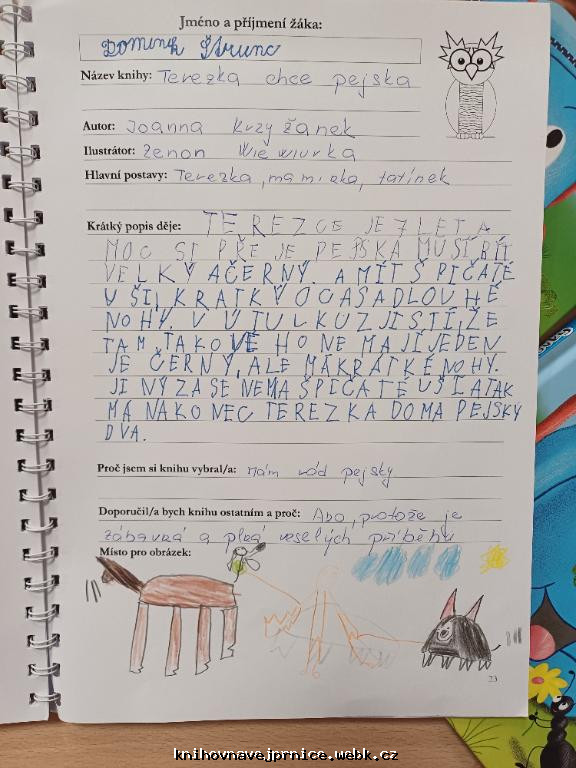 Jméno a příjmení žáka:
Dominik Štrunc
Název knihy: Terezka chce pejska
Autor: Joanna Krzyžanek
Ilustrátor: Zenon Wiewiurka
Hlavní postavy: Terezka, maminka, tatínek
Krátký popis děje: TEREZCE JE 7 LET A
MOC SI PŘEJE PEJSKA MUSÍ BÝT
VELKÝ A ČERNÝ. A MÍT ŠPIČATÉ
UŠI, KRATKÝ OCAS A DLOUHÉ
NOHY. V ÚTULKU ZJISTÍ, ŽE
TAM TAKOVÉHO NEMAJÍ JEDEN
JE ČERNÝ, ALE MÁ KRÁTKÉ NOHY.
JINÝ ZASE NEMÁ ŠPIČATÉ UŠI A TAK
MÁ NAKONEC TEREZKA DOMA PEJSKY
DVA.
Proč jsem si knihu vybral/a: mám rád pejsky
Doporučil/a bych knihu ostatním a proč: Ano, protože je
zábavná a plná veselých příběhů
Místo pro obrázek:
23
knihovnavejprnice.webk.cz